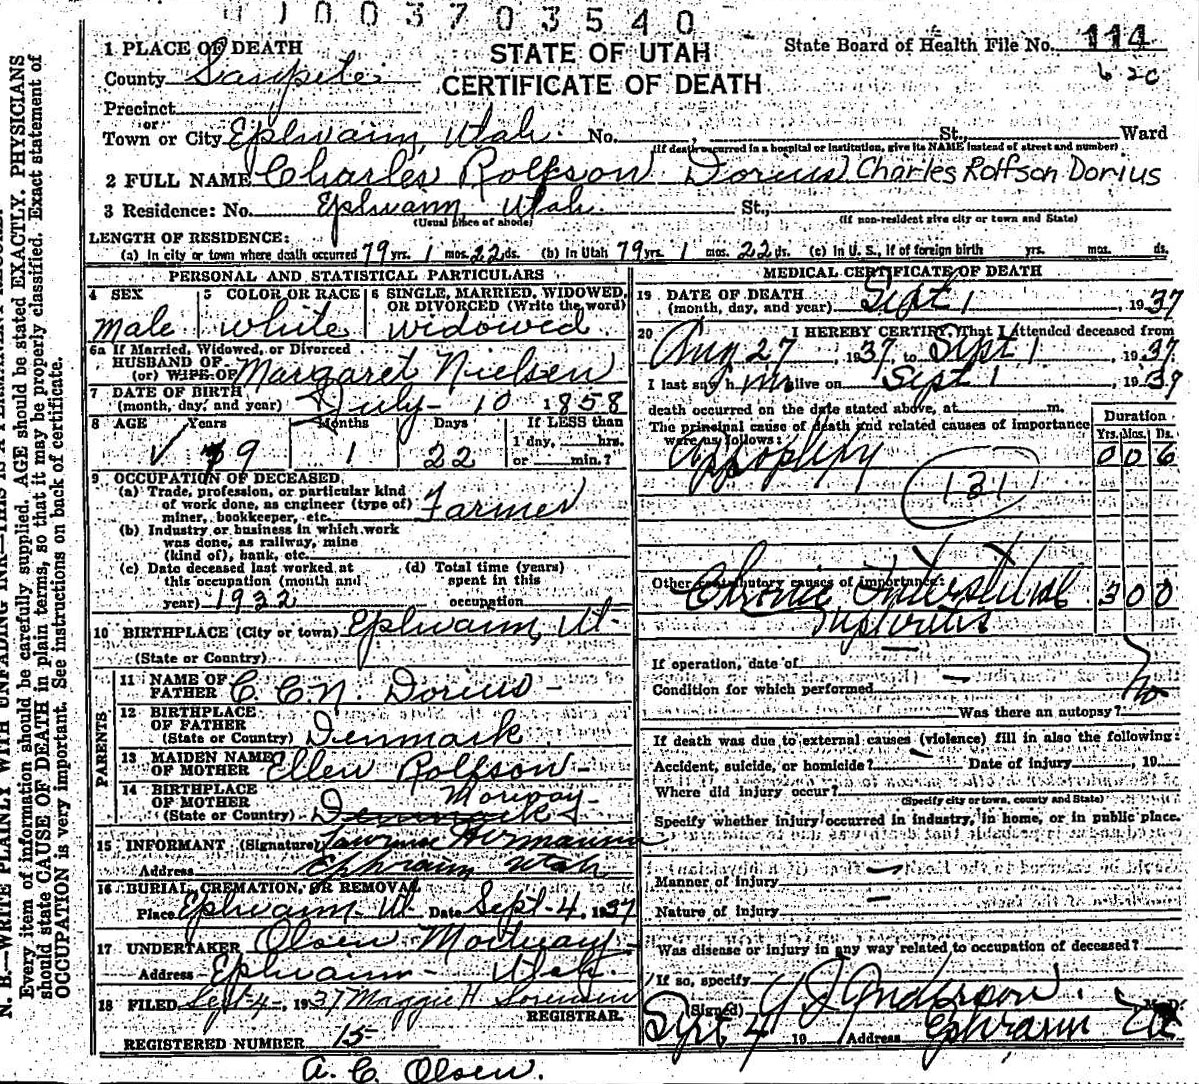 003703540
STATE OF UTAH
CERTIFICATE OF DEATH
State Board of Health File No. 114
620
1 PLACE OF DEATH
County Sanpete
Precinct
or
Town or City Ephraim, Utah. No. St., Ward
(If death occurred in a hospital or institution, give its NAME instead of street and number)
2 FULL NAME Charles Rolfson Dorius Charles Rolfson Dorius
3 Residence: No. Ephraim Utah. St.,
(Usual place of abode) (If non-resident give city or town and State)
LENGTH OF RESIDENCE:
(a) In city or town where death occurred 79 yrs. 1 mos. 22 ds. (b) In Utah 79 yrs. 1 mos. 22 ds. (c) in U. S., if of foreign birth yrs. mos. ds.
PERSONAL AND STATISTICAL PARTICULARS
4 SEX 5 COLOR OR RACE 6 SINGLE, MARRIED, WIDOWED, OR DIVORCED (Write the word)
male white widowed.
6a If Married, Widowed, or Divorced
HUSBAND OF
(or) WIFE OF Margaret Nielsen
7 DATE OF BIRTH
(month, day, and year) July - 10 1858
8 AGE Years Months Days If LESS than
1 day, hrs.
79 1 22 or min.?
9 OCCUPATION OF DECEASED
(a) Trade, profession, or particular kind
of work done, as engineer (type of)
miner, bookkeeper, etc. Farmer
(b) Industry or business in which work
was done, as railway, mine
(kind of), bank, etc.
(c) Date deceased last worked at (d) Total time (years)
this occupation (month and spent in this
year) 1932 occupation
10 BIRTHPLACE (City or town) Ephraim, Ut.
(State or Country)
PARENTS
11 NAME OF
FATHER C. C. N. Dorius -
12 BIRTHPLACE
OF FATHER
(State or Country) Denmark
13 MAIDEN NAME
OF MOTHER Ellen Rolfson -
14 BIRTHPLACE
OF MOTHER Norway -
(State or Country) Denmark
15 INFORMANT (Signature) Hermansen
Address Ephraim Utah
16 BURIAL, CREMATION, OR REMOVAL
Place Ephraim - Ut. Date Sept - 4, 1937
17 UNDERTAKER Olsen Mortuary -
Address Ephraim - Utah.
18 FILED Sept - 4 -, 1937 Maggie H Sorensen
REGISTRAR.
REGISTERED NUMBER 15
A. C. Olsen.
MEDICAL CERTIFICATE OF DEATH
19 DATE OF DEATH
(month, day, and year) Sept 1, 1937
20 I HEREBY CERTIFY, That I attended deceased from
Aug 27, 1937, to Sept 1, 1937.
I last saw h im alive on Sept 1, 1937
death occurred on the date stated above, at m.
The principal cause of death and related causes of importance
were as follows:
Duration
Yrs. Mos. Ds.
Apoplexy 0 0 6
131
Other contributory causes of importance:
Chronic Interstitial 3 0 0
Nephritis
If operation, date of —
Condition for which performed
Was there an autopsy? no
If death was due to external causes (violence) fill in also the following:
Accident, suicide, or homicide? Date of injury, 19
Where did injury occur?
(Specify city or town, county and State)
Specify whether injury occurred in industry, in home, or in public place.
Manner of injury —
Nature of injury —
Was disease or injury in any way related to occupation of deceased?
If so, specify
(Signed) Anderson. M. D.
Sept 4 19 Address Ephraim Ut
N. B.—WRITE PLAINLY WITH UNFADING INK—THIS IS A PERMANENT RECORD.
Every item of information should be carefully supplied. AGE should be stated EXACTLY. PHYSICIANS
should state CAUSE OF DEATH in plain terms, so that it may be properly classified. Exact statement of
OCCUPATION is very important. See instructions on back of certificate.